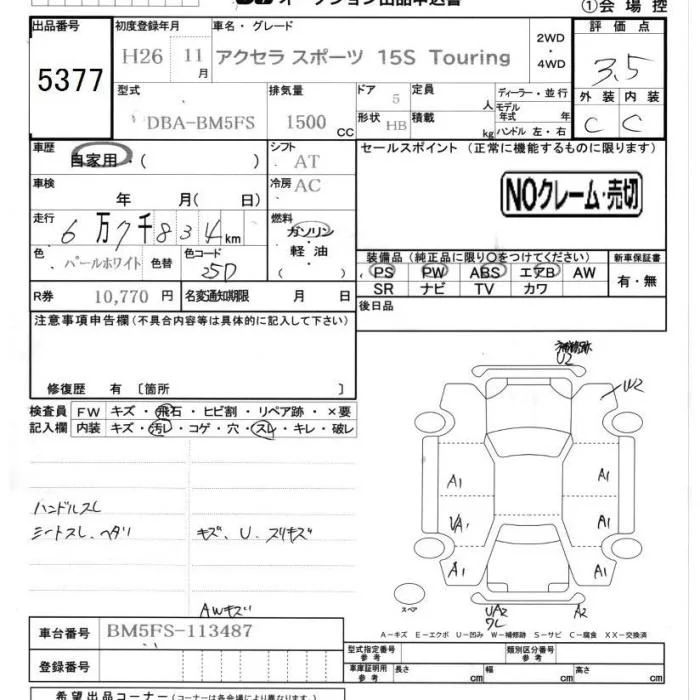 オークション出品申込書
①会場控
出品番号
5377
初度登録年月
H26 11月
車名・グレード
アクセラ スポーツ 15S Touring
2WD
・
4WD
評価点
3.5
外装 内装
C C
型式
DBA-BM5FS
排気量
1500 CC
ドア
5
形状 HB
定員
人
積載
kg
ディーラー・並行
モデル年式 年
ハンドル 左・右
車歴
自家用・( )
シフト
AT
車検
年 月( 日)
冷房 AC
走行
6万7千834km
燃料
ガソリン
・
軽油
( )
色
パールホワイト
色替
色コード
25D
R券 10,770 円
名変通知期限 月 日
セールスポイント (正常に機能するものに限ります)
NOクレーム・売切
装備品 (純正品に限り○をつけてください)
新車保証書
PS PW ABS エアB AW
SR ナビ TV カワ
有・無
後日品
注意事項申告欄(不具合内容等は具体的に記入して下さい)
修復歴 有 〔箇所 〕
検査員
記入欄
FW キズ・飛石・ヒビ割・リペア跡・×要
内装 キズ・汚レ・コゲ・穴・スレ・キレ・破レ
ハンドルスレ
シートスレ、ヘタリ
キズ、U、スリキズ
AWキズ
U2
W2
A1
A1
A1
A1
A1
スペア
UA2
A2
A-キズ E-エクボ U-凹み W-補修跡 S-サビ C-腐食 XX-交換済
車台番号 BM5FS-113487
登録番号
型式指定番号
参考
類別区分番号
参考
車庫証明用
参考
長さ cm 幅 cm 高さ cm
希望出品コーナー(コーナーは各会場により異なります。)